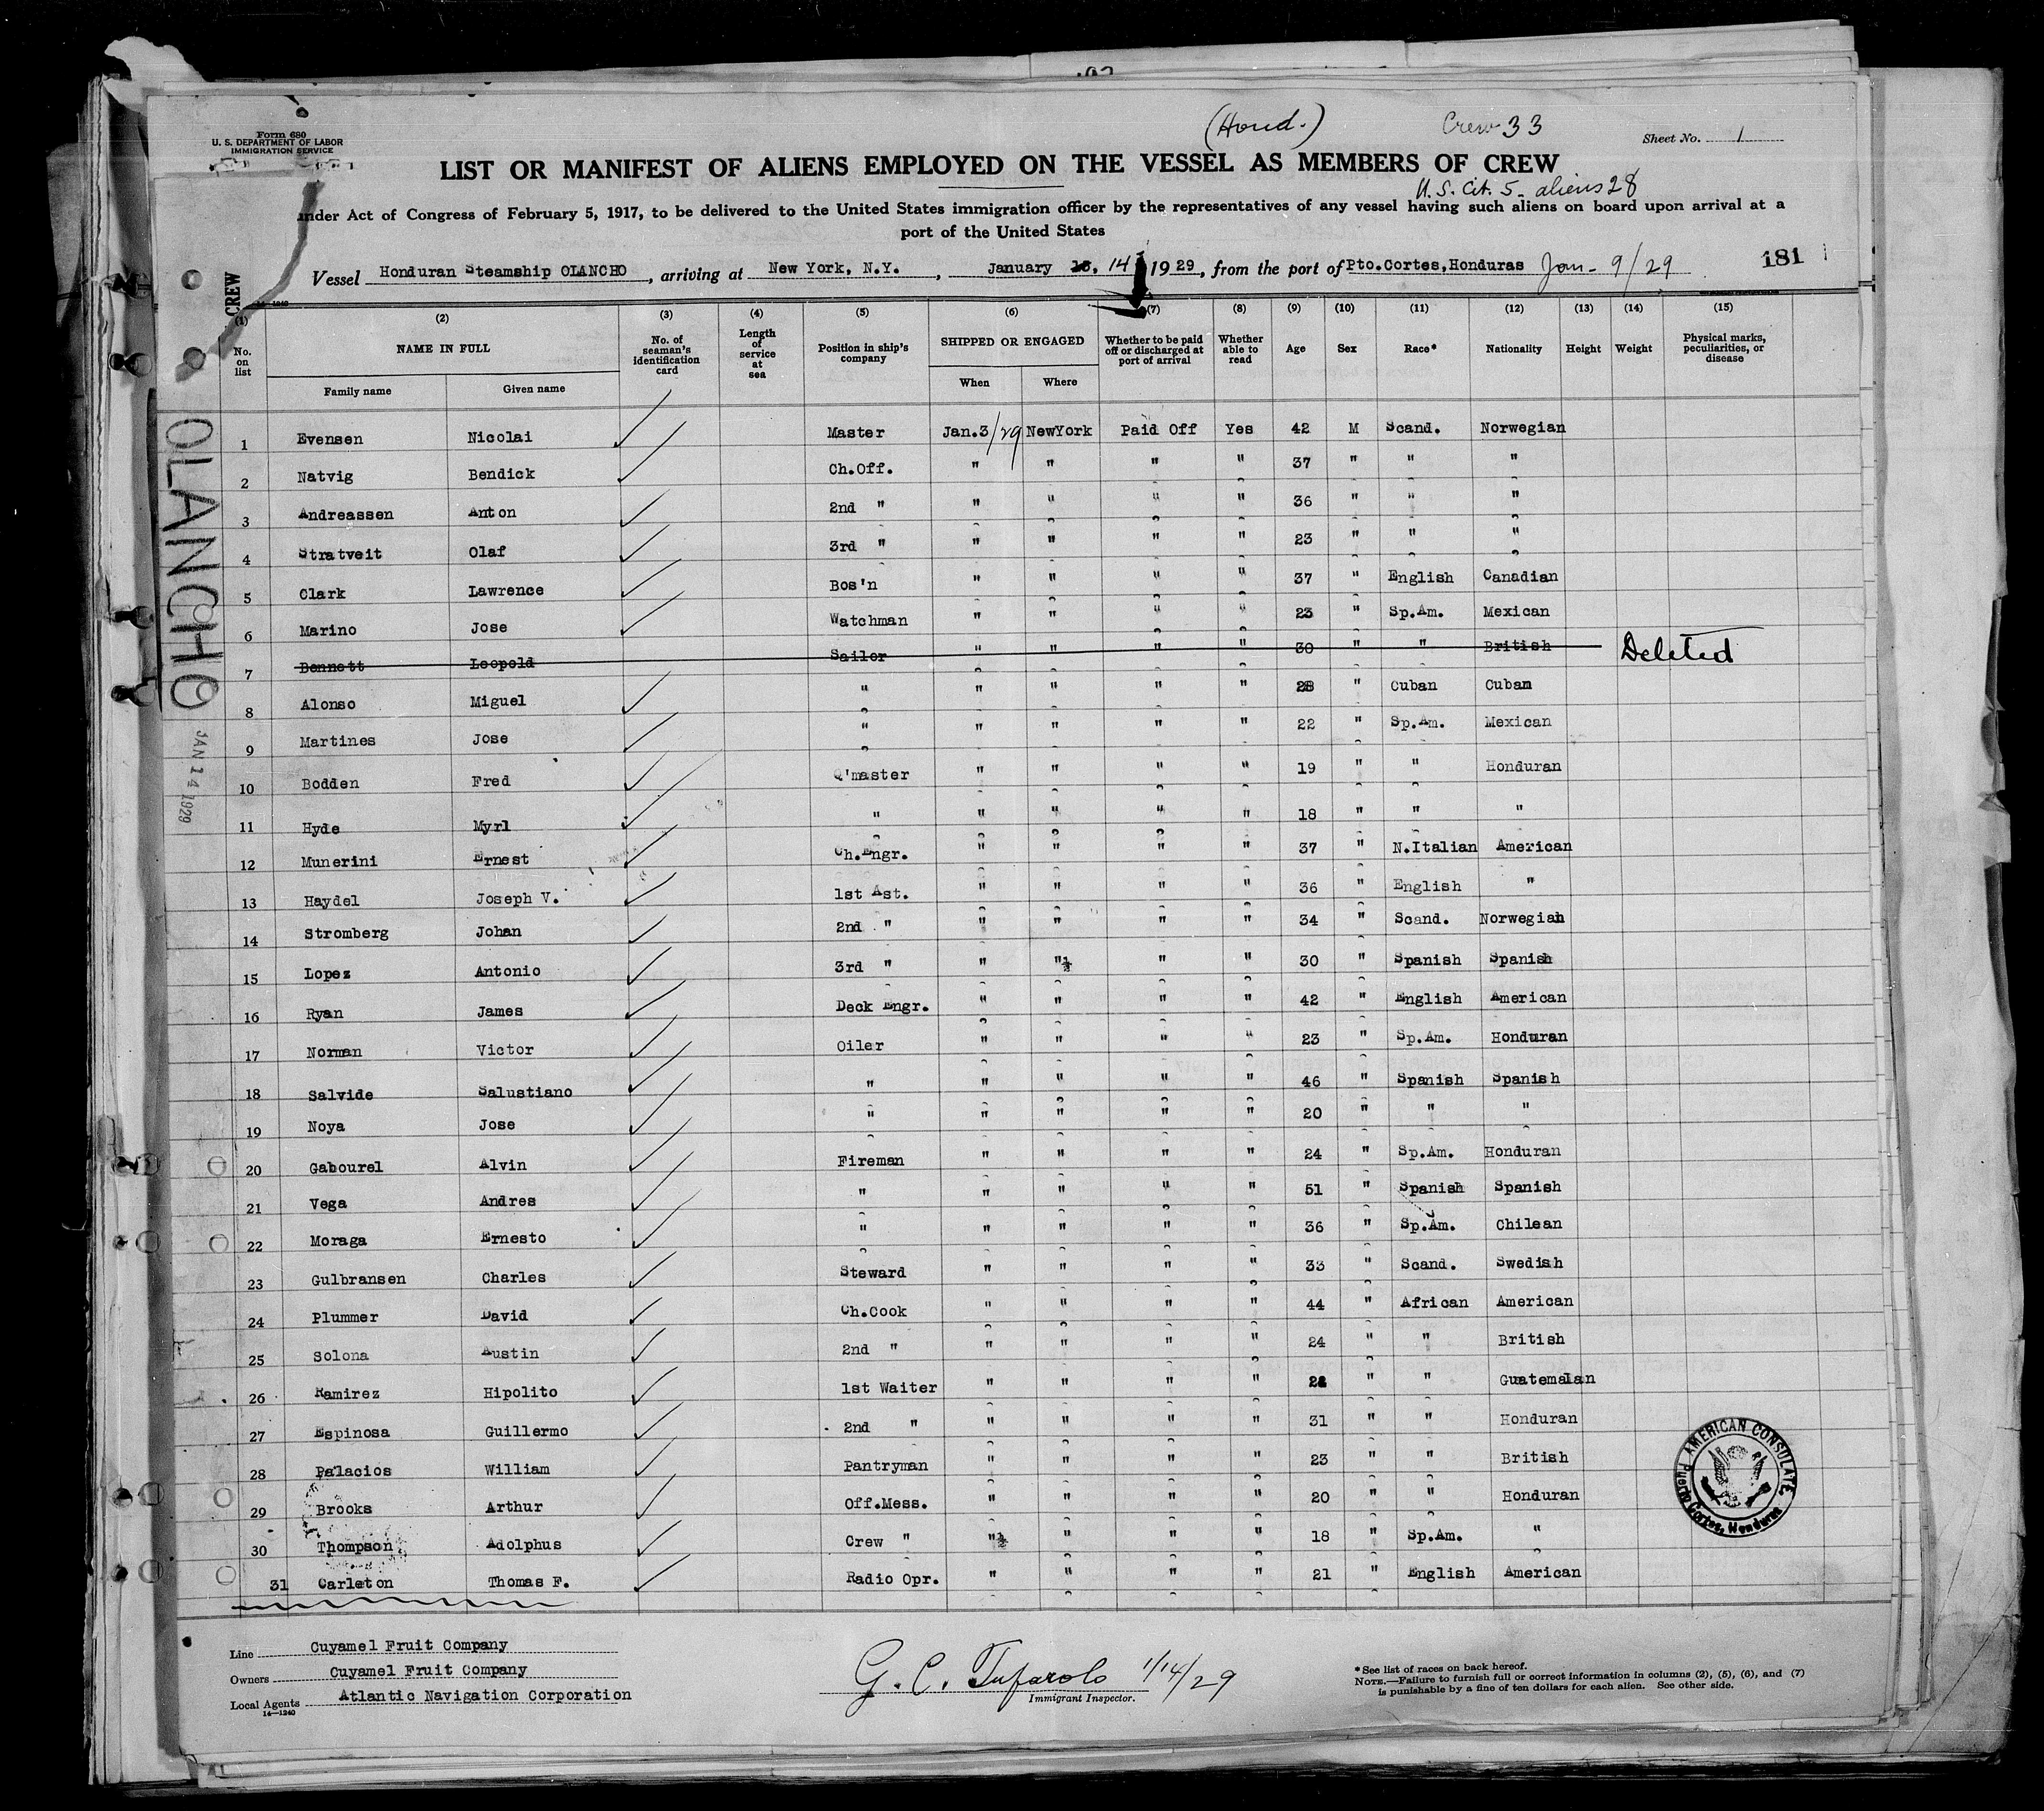 (Hond.) Crew 33
Form 680
U. S. DEPARTMENT OF LABOR
IMMIGRATION SERVICE
Sheet No. 1
LIST OR MANIFEST OF ALIENS EMPLOYED ON THE VESSEL AS MEMBERS OF CREW
U. S. Cit. 5 - aliens 28
under Act of Congress of February 5, 1917, to be delivered to the United States immigration officer by the representatives of any vessel having such aliens on board upon arrival at a
port of the United States
181
CREW
Vessel Honduran Steamship OLANCHO, arriving at New York, N.Y., January 14 1929, from the port of Pto.Cortes,Honduras Jan - 9/29
(1) (2) (3) (4) (5) (6) (7) (8) (9) (10) (11) (12) (13) (14) (15)
No. on list NAME IN FULL Family name Given name No. of seaman's identification card Length of service at sea Position in ship's company SHIPPED OR ENGAGED When Where Whether to be paid off or discharged at port of arrival Whether able to read Age Sex Race* Nationality Height Weight Physical marks, peculiarities, or disease
OLANCHO
JAN 14 1929
1 Evensen Nicolai Master Jan.3/29 NewYork Paid Off Yes 42 M Scand. Norwegian
2 Natvig Bendick Ch.Off. " " " " 37 " " "
3 Andreassen Anton 2nd " " " " " 36 " " "
4 Stratveit Olaf 3rd " " " " " 23 " " "
5 Clark Lawrence Bos'n " " " " 37 " English Canadian
6 Marino Jose Watchman " " " " 23 " Sp.Am. Mexican
7 Bennett Leopold Sailor " " " " 30 " " British Deleted
8 Alonso Miguel " " " " " 28 " Cuban Cuban
9 Martines Jose " " " " " 22 " Sp.Am. Mexican
10 Bodden Fred Q'master " " " " 19 " " Honduran
11 Hyde Myrl " " " " " 18 " " "
12 Munerini Ernest Ch.Engr. " " " " 37 " N.Italian American
13 Haydel Joseph V. 1st Ast. " " " " 36 " English "
14 Stromberg Johan 2nd " " " " " 34 " Scand. Norwegian
15 Lopez Antonio 3rd " " " " " 30 " Spanish Spanish
16 Ryan James Deck Engr. " " " " 42 " English American
17 Norman Victor Oiler " " " " 23 " Sp.Am. Honduran
18 Salvide Salustiano " " " " " 46 " Spanish Spanish
19 Noya Jose " " " " " 20 " " "
20 Gabourel Alvin Fireman " " " " 24 " Sp.Am. Honduran
21 Vega Andres " " " " " 51 " Spanish Spanish
22 Moraga Ernesto " " " " " 36 " Sp.Am. Chilean
23 Gulbransen Charles Steward " " " " 33 " Scand. Swedish
24 Plummer David Ch.Cook " " " " 44 " African American
25 Solona Austin 2nd " " " " " 24 " " British
26 Ramirez Hipolito 1st Waiter " " " " " " Guatemalan
27 Espinosa Guillermo 2nd " " " " " 31 " " Honduran
28 Palacios William Pantryman " " " " 23 " " British
29 Brooks Arthur Off.Mess. " " " " 20 " " Honduran
30 Thompson Adolphus Crew " " " " " 18 " Sp.Am. "
31 Carleton Thomas F. Radio Opr. " " " " 21 " English American
AMERICAN CONSULATE
Puerto Cortes, Honduras
Line Cuyamel Fruit Company
Owners Cuyamel Fruit Company
Local Agents Atlantic Navigation Corporation
14—1240
G. C. Tufarolo 1/14/29
Immigrant Inspector.
*See list of races on back hereof.
NOTE.—Failure to furnish full or correct information in columns (2), (5), (6), and (7)
is punishable by a fine of ten dollars for each alien. See other side.